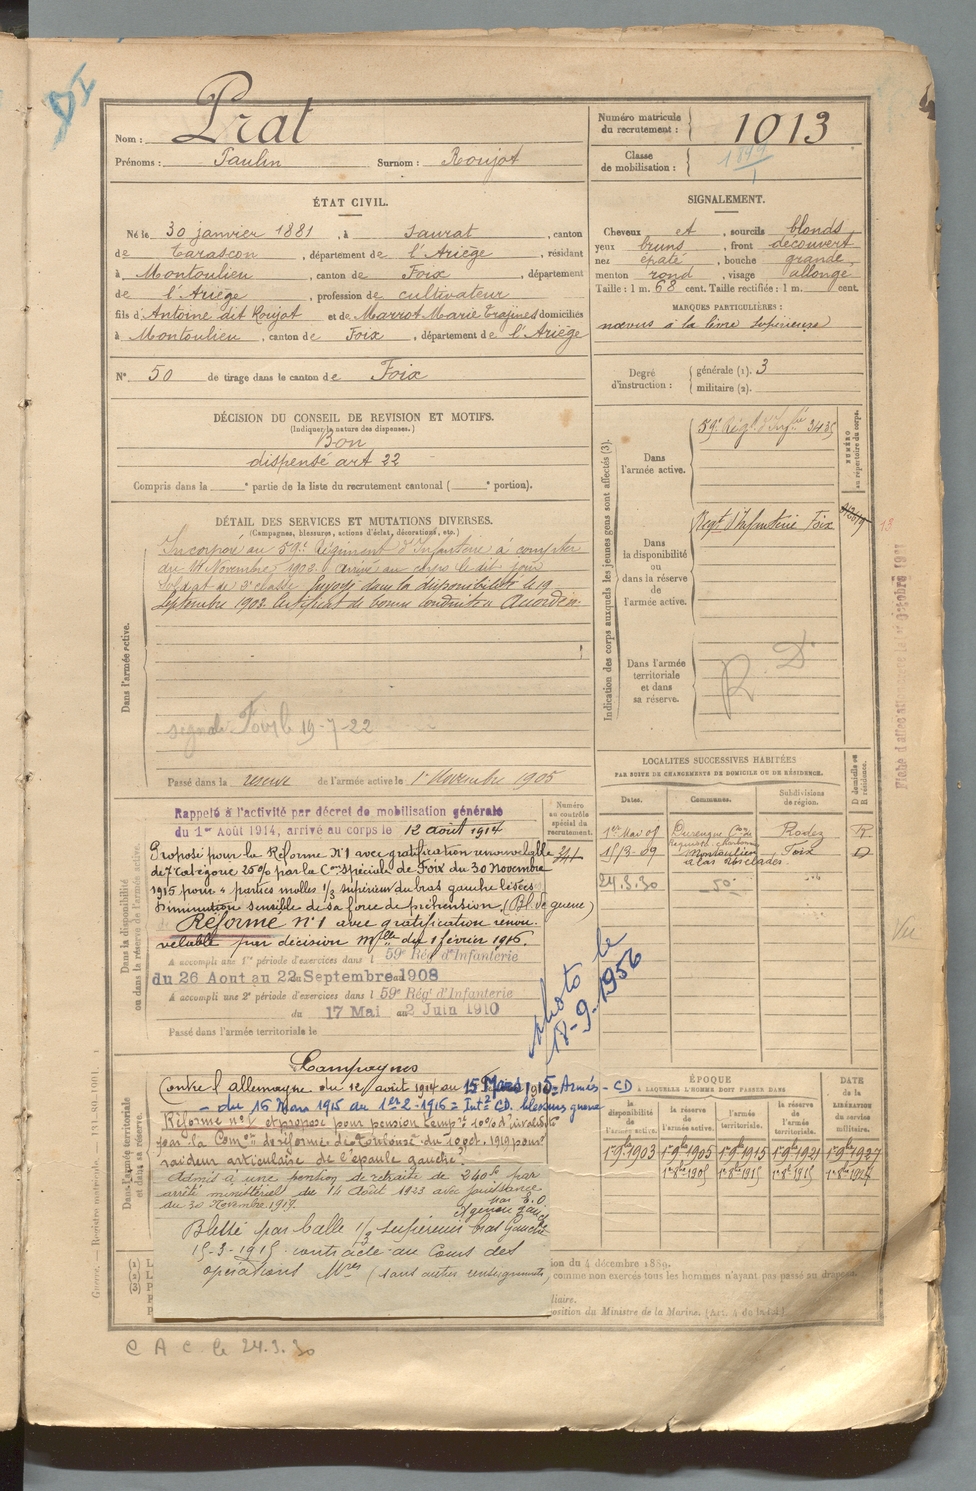 DI
Nom : Prat
Prénoms : Paulin Surnom : Roujot
Numéro matricule du recrutement : 1013
Classe de mobilisation :
ÉTAT CIVIL.
Né le 30 janvier 1881, à Saurat, canton
de Tarascon, département de l'Ariège, résidant
à Montoulieu, canton de Foix, département
de l'Ariège, profession de cultivateur
fils d'Antoine dit Roujot et de Marrot Marie domiciliés
à Montoulieu, canton de Foix, département de l'Ariège
N° 50 de tirage dans le canton de Foix
SIGNALEMENT.
Cheveux et, sourcils blonds
yeux bruns, front découvert
nez épaté, bouche grande,
menton rond, visage allongé
Taille : 1 m. 68 cent. Taille rectifiée : 1 m. cent.
MARQUES PARTICULIÈRES :
nœvus à la lèvre supérieure
Degré d'instruction : générale (1). 3
militaire (2).
DÉCISION DU CONSEIL DE REVISION ET MOTIFS.
(Indiquer la nature des dispenses.)
Bon
dispensé art 22
Compris dans la e partie de la liste du recrutement cantonal ( e portion).
DÉTAIL DES SERVICES ET MUTATIONS DIVERSES.
(Campagnes, blessures, actions d'éclat, décorations, etc.)
Dans l'armée active.
Incorporé au 59e Régiment d'Infanterie à compter
du Novembre 1902. Arrivé au corps le dit jour
Soldat de 2e classe. dans la disponibilité le 19
Septembre 1903. Certificat de bonne conduite
Foix le 19-7-22
Passé dans la réserve de l'armée active le 1er Novembre 1905
Indication des corps auxquels les jeunes gens sont affectés (3).
Dans l'armée active. 59e Rég
Dans la disponibilité ou dans la réserve de l'armée active. Regt d'Infanterie Foix
Dans l'armée territoriale et dans sa réserve. R. D.
NUMÉRO au répertoire du corps.
Fiche d'affectation 1er Octobre 1921
LOCALITES SUCCESSIVES HABITÉES
PAR SUITE DE CHANGEMENTS DE DOMICILE OU DE RÉSIDENCE.
Dates. Communes. Subdivisions de région. D domicile ou R résidence.
Rodez R
Montoulieu Foix D
24.3.30 do
Dans la disponibilité ou dans la réserve de l'armée active.
Numéro au contrôle spécial du recrutement.
Rappelé à l'activité par décret de mobilisation générale
du 1er Août 1914, arrivé au corps le 12 août 1914
Proposé pour la Réforme N°1 avec gratification renouvelable
de 7e catégorie 25% par la Con spéciale de Foix du 30 Novembre
1915 pour 1/3 supérieur du bras gauche
Diminution sensible de sa force de préhension (Bl. de guerre)
Réformé n°1 avec gratification renou-
velable par décision Mlle du 1 février 1916.
A accompli une 1re période d'exercices dans l 59e Rég d'Infanterie
du 26 Aout au 22 Septembre 1908
A accompli une 2e période d'exercices dans l 59e Rég d'Infanterie
du 17 Mai au 2 Juin 1910
Passé dans l'armée territoriale le
photo le
18-9-1956
Vu
Dans l'armée territoriale et dans sa réserve.
Campagnes
Contre l'allemagne du 12 août 1914 au 15 Mars 1915 = Armés - CD
- du 16 Mars 1915 au 1er 2-1916 = Intr CD. blessure guerre
Réforme n° 1 et proposé pour pension temp 10% d'invalidité
par la Comon de réforme de Toulouse du 10 oct. 1919 pour
raideur articulaire de l'épaule gauche.
Admis à une pension de retraite de 240f par
arrêté ministériel du 14 Août 1923 avec jouissance
du 30 Novembre 1919.
Blessé par balle 1/3 supérieur bras Gauche
15-3-1915 contracté au Cours des
opérations Mres (sans autres renseignements)
ÉPOQUE
À LAQUELLE L'HOMME DOIT PASSER DANS
la disponibilité de l'armée active. la réserve de l'armée active. l'armée territoriale. la réserve de l'armée territoriale.
DATE de la LIBÉRATION du service militaire.
1er 9bre 1903 1er 9bre 1905 1er 9bre 1915 1er 9bre 1921 1er 9bre 1927
ion du 4 décembre 1889.
comme non exercés tous les hommes n'ayant pas passé au drapeau
osition du Ministre de la Marine.
C A C le 24.3.30